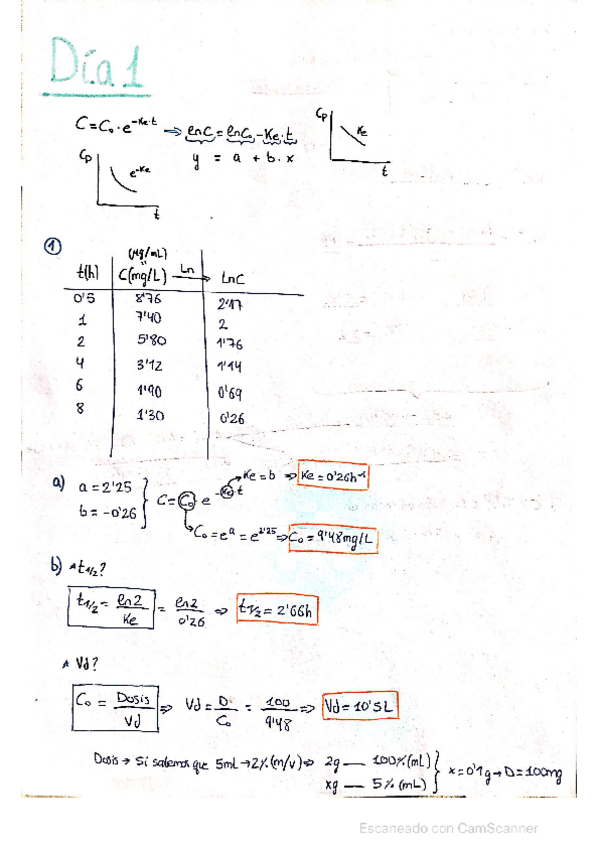 Día 1
C = C₀ · e^(-Ke·t) ⇒ lnC = lnC₀ - Ke·t
y = a + b · x
Cp
Ke
t
Cp
e^(-Ke)
t
①
(μg/mL)
"
t(h) C(mg/L) Ln → LnC
0'5 8'76 2'17
1 7'40 2
2 5'80 1'76
4 3'12 1'14
6 1'90 0'69
8 1'30 0'26
a) a = 2'25
b = -0'26
C = C₀ · e^(-Ke·t)
Ke = b ⇒ Ke = 0'26h⁻¹
C₀ = e^a = e^2'25 ⇒ C₀ = 9'48mg/L
b) * t1/2?
t1/2 = ln2/Ke = ln2/0'26 ⇒ t1/2 = 2'66h
* Vd?
C₀ = Dosis/Vd ⇒ Vd = D/C₀ = 100/9'48 ⇒ Vd = 10'5L
Dosis → Si sabemos que 5mL → 2% (m/v) ⇒ 2g — 100% (mL)
xg — 5% (mL)
x = 0'1g → D = 100mg
Escaneado con CamScanner